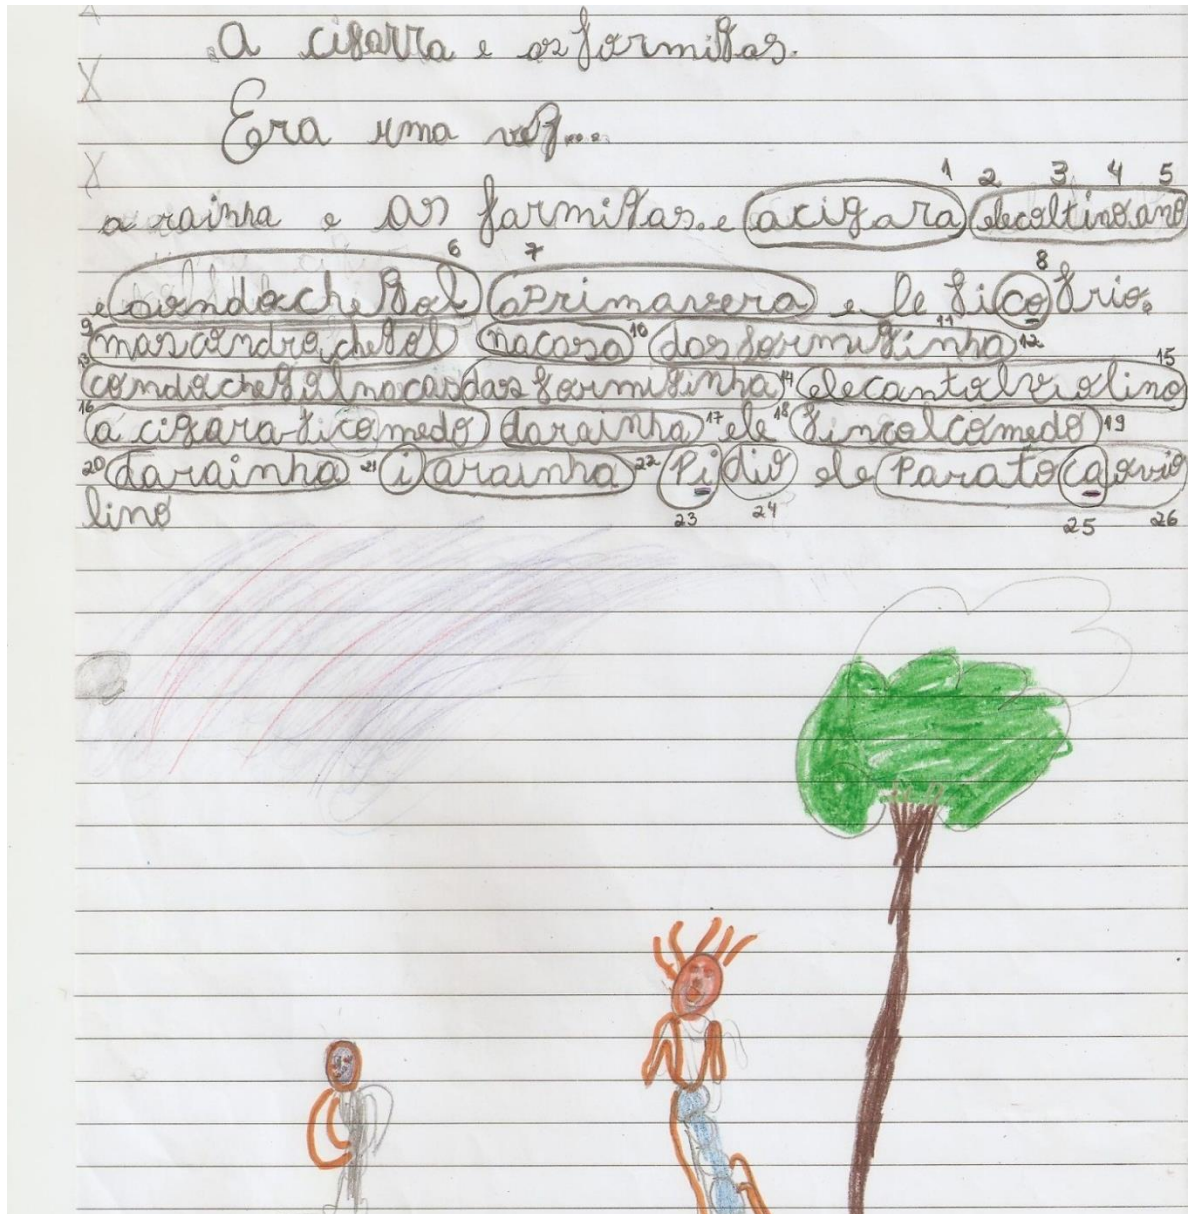 A cigarra e as formigas.
Era uma vez...
1 2 3 4 5
a rainha e as formigas. e acigara elecoltinoano
6 7 8
e condocheGol aPrimavera e le fico frio.
9 mascondrochegol nacasa 10 dasformiginha 11 12
13 condochegolnacasdasformiginha 14 elecantolviolino 15
16 a cigara ficomedo darainha 17 ele 18 fincolcomedo 19
20 darainha 21 i arainha 22 Pidiu ele Paratocaoxvio
lino 23 24 25 26